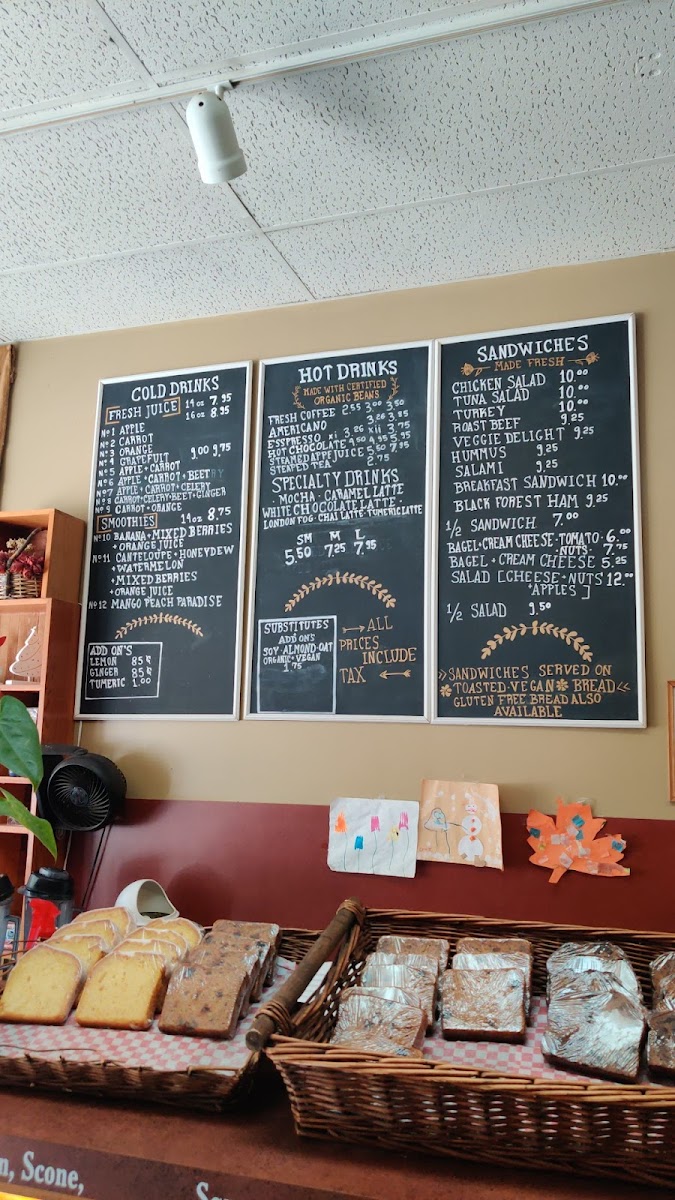 COLD DRINKS
FRESH JUICE 14oz 7.95
16oz 8.95
Nº1 APPLE
Nº2 CARROT
Nº3 ORANGE
Nº4 GRAPEFRUIT 9.00 9.75
Nº5 APPLE+CARROT
Nº6 APPLE+CARROT+BEET
Nº7 APPLE+CARROT+CELERY
Nº8 CARROT+CELERY+BEET+GINGER
Nº9 CARROT+ORANGE
SMOOTHIES 14oz 8.75
Nº10 BANANA+MIXED BERRIES
+ORANGE JUICE
Nº11 CANTELOUPE+HONEYDEW
+WATERMELON
+MIXED BERRIES
+ORANGE JUICE
Nº12 MANGO PEACH PARADISE
ADD ON'S
LEMON 85¢
GINGER 85¢
TUMERIC 1.00
HOT DRINKS
MADE WITH CERTIFIED
ORGANIC BEANS
FRESH COFFEE 2.55 3.00 3.50
AMERICANO 3.26 3.85
ESSPRESSO x1 3.26 x11 3.75
HOT CHOCOLATE 4.50 4.95 5.95
STEAMED APPLE JUICE 5.50 7.95
STEAPED TEA 2.75
SPECIALTY DRINKS
· MOCHA · CARAMEL LATTE
WHITE CHOCOLATE LATTE ·
LONDON FOG · CHAI LATTE · TUMERIC LATTE
SM M L
5.50 7.25 7.95
SUBSTITUTES
ADD ON'S
SOY · ALMOND · OAT
ORGANIC + VEGAN
1.75
ALL
PRICES
INCLUDE
TAX
SANDWICHES
MADE FRESH
CHICKEN SALAD 10.00
TUNA SALAD 10.00
TURKEY 10.00
ROAST BEEF 9.25
VEGGIE DELIGHT 9.25
HUMMUS 9.25
SALAMI 9.25
BREAKFAST SANDWICH 10.00
BLACK FOREST HAM 9.25
1/2 SANDWICH 7.00
BAGEL+CREAM CHEESE·TOMATO· 6.00
·NUTS· 7.75
BAGEL + CREAM CHEESE 5.25
SALAD [CHEESE·NUTS 12.00
+APPLES]
1/2 SALAD 9.50
SANDWICHES SERVED ON
TOASTED·VEGAN BREAD
GLUTEN FREE BREAD ALSO
AVAILABLE
n, Scone,